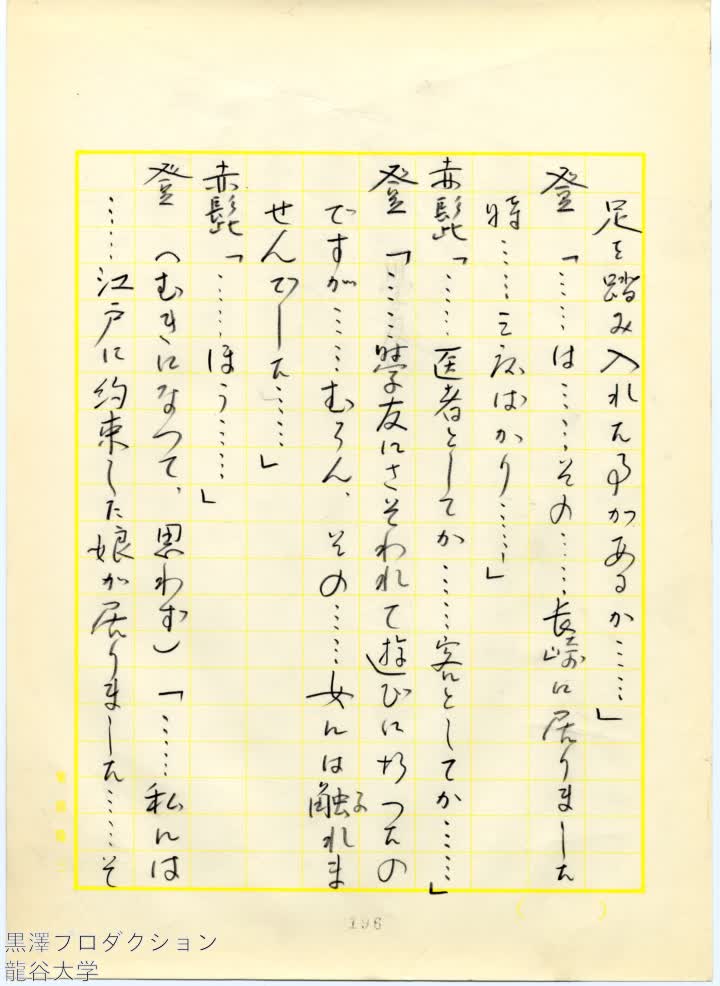 足を踏み入れた事があるか……」
登「……は……その……長崎に居りました
時……三度ばかり……」
赤髭「……医者としてか……客としてか……」
登「……学友にさそわれて遊びに行つたの
ですが……むろん、その……女には触れま
せんでした……」
赤髭「……ほう……」
登（むきになつて、思わず）「……私には
……江戸に約束した娘が居りました……そ
196
黒澤プロダクション
龍谷大学